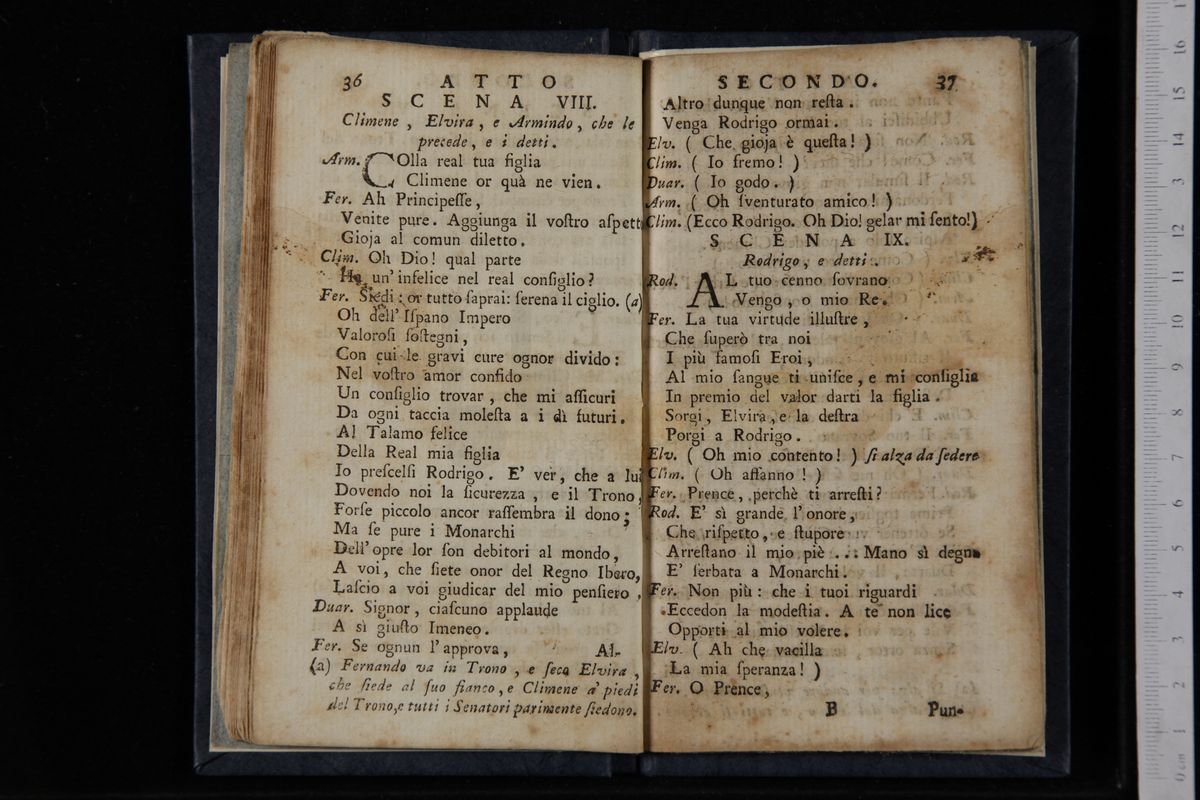 36 ATTO
SCENA VIII.
Climene, Elvira, e Armindo, che le
precede, e i detti.
Arm. COlla real tua figlia
Climene or quà ne vien.
Fer. Ah Principeſſe,
Venite pure. Aggiunga il voſtro aſpett
Gioja al comun diletto.
Clim. Oh Dio! qual parte
Ha un' infelice nel real conſiglio?
Fer. Siedi: or tutto ſaprai: ſerena il ciglio. (a)
Oh dell' Iſpano Impero
Valoroſi ſoſtegni,
Con cui le gravi cure ognor divido:
Nel voſtro amor confido
Un conſiglio trovar, che mi aſſicuri
Da ogni taccia moleſta a i dì futuri.
Al Talamo felice
Della Real mia figlia
Io preſcelſi Rodrigo. E' ver, che a lui
Dovendo noi la ſicurezza, e il Trono,
Forſe piccolo ancor raſſembra il dono;
Ma ſe pure i Monarchi
Dell' opre lor ſon debitori al mondo,
A voi, che ſiete onor del Regno Ibero,
Laſcio a voi giudicar del mio penſiero,
Duar. Signor, ciaſcuno applaude
A sì giuſto Imeneo.
Fer. Se ognun l'approva,
Al-
(a) Fernando va in Trono, e ſeco Elvira,
che ſiede al ſuo fianco, e Climene a' piedi
del Trono, e tutti i Senatori parimente ſiedono.
SECONDO. 37
Altro dunque non reſta.
Venga Rodrigo ormai.
Elv. (Che gioja è queſta!)
Clim. (Io fremo!)
Duar. (Io godo.)
Arm. (Oh ſventurato amico!)
Clim. (Ecco Rodrigo. Oh Dio! gelar mi ſento!)
SCENA IX.
Rodrigo, e detti.
Rod. AL tuo cenno ſovrano
Vengo, o mio Re.
Fer. La tua virtude illuſtre,
Che ſuperò tra noi
I più famoſi Eroi,
Al mio ſangue ti uniſce, e mi conſiglia
In premio del valor darti la figlia.
Sorgi, Elvira, e la deſtra
Porgi a Rodrigo.
Elv. (Oh mio contento!) ſi alza da ſedere
Clim. (Oh affanno!)
Fer. Prence, perchè ti arreſti?
Rod. E' sì grande l'onore,
Che riſpetto, e ſtupore
Arreſtano il mio piè... Mano sì degna
E' ſerbata a Monarchi.
Fer. Non più: che i tuoi riguardi
Eccedon la modeſtia. A te non lice
Opporti al mio volere.
Elv. (Ah che vacilla
La mia ſperanza!)
Fer. O Prence,
B Pun-
0 cm 1 2 3 4 5 6 7 8 9 10 11 12 13 14 15 16 17